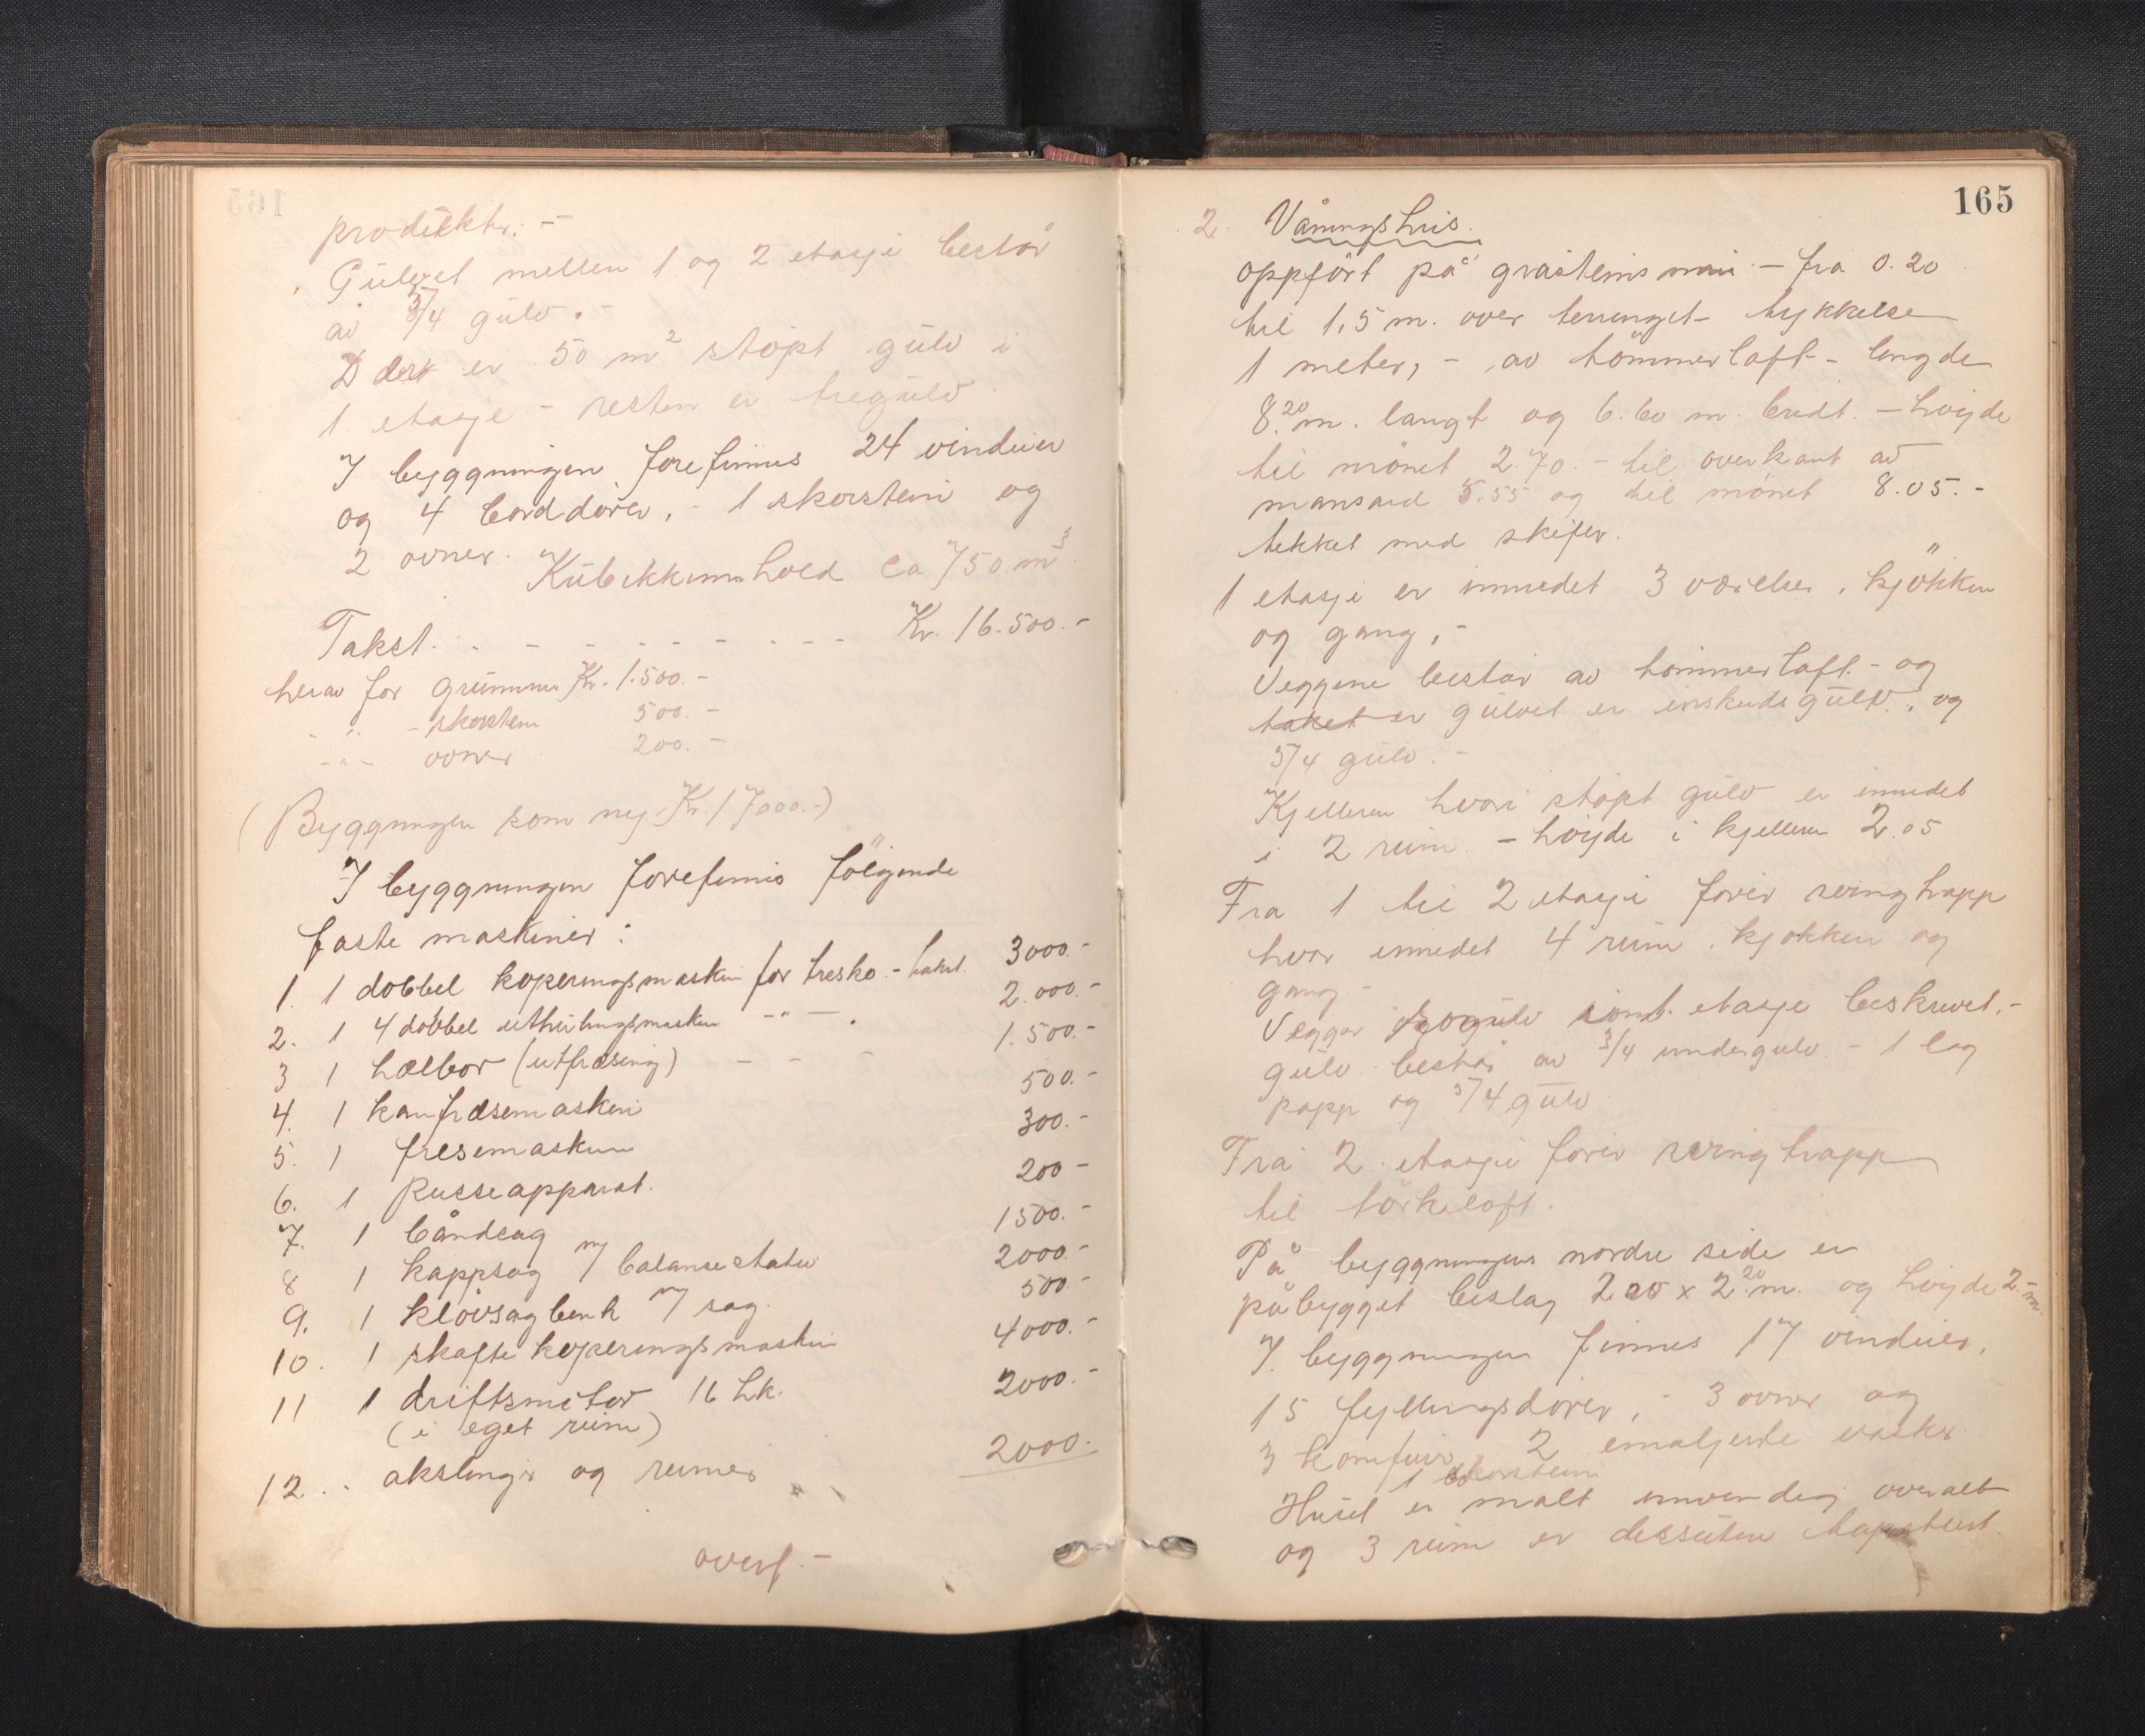 produkter. -
Gulvet mellem 1 og 2 etasje består
av 5/4 gulv. -
Der er 50 m² støpt gulv i
1 etasje - resten er tregulv.
I byggningen forefinnes 24 vinduer
og 4 borddører, - 1 skorstein og
2 ovner. Kubikkinnhold ca 750 m³.
Takst. - - - - - - - - Kr. 16.500.-
herav for grunnmur Kr. 1.500.-
- " - skorstein 500.-
- " - ovner 200.-
(Byggningen som ny Kr. 17000.-)
I byggningen forefinnes følgende
faste maskiner:
1. 1 dobbel koperingsmaskin for tresko - takst. 3000.-
2. 1 4 dobbel uthulingsmaskin - " - . 2.000.-
3 1 hælbor (utfræsing) - - - 1.500.-
4. 1 kamfræsemaskin 500.-
5. 1 fresemaskin 300.-
6. 1 Pusseapparat. 200-
7. 1 båndsag 1500.-
8 1 kappsag m/ balansestativ 2000.-
9. 1 kløvsagbenk m/ sag. 500
10. 1 skafte koperingsmaskin 4000.-
11 1 driftsmotor 16 hk. 2000.-
(i eget rum)
12. . akslinger og reimer 2000.-
overf. -
165
2. Våningshus.
oppført på gråsteins mur - fra 0.20
til 1,5 m. over terrenget - tykkelse
1 meter, - av tømmerlaft - lengde
8.20 m. langt og 6.60 m. bredt. - høyde
til mønet 2.70. - til overkant av
mansard 5.55 og til mønet 8.05. -
tekket med skifer.
1 etasje er innredet 3 værelser, kjøkken
og gang, -
Veggene består av tømmerlaft - og
taket er gulvet er inskudsgulv, og
5/4 gulv. -
Kjelleren hvori støpt gulv er innredet
i 2 rum - høyde i kjelleren 2.05
Fra 1 til 2 etasje fører svingtrapp
hvor innredet 4 rum, kjøkken og
gang. -
Vegger og gulv som 1. etasje beskrevet. -
gulv består av 3/4 undergulv - 1 lag
papp og 5/4 gulv
Fra 2. etasje fører svingtrapp
til tørkeloft.
På byggningens nordre side er
påbygget beslag 2.20 x 2.20 m. og høyde 2.- m.
I byggningen finnes 17 vinduer,
15 fyllingsdører, - 3 ovner og
3 komfurer, 2 emaljerte vasker
1 skorstein
Huset er malt innvendig overalt
og 3 rum er dessuten tapetsert.